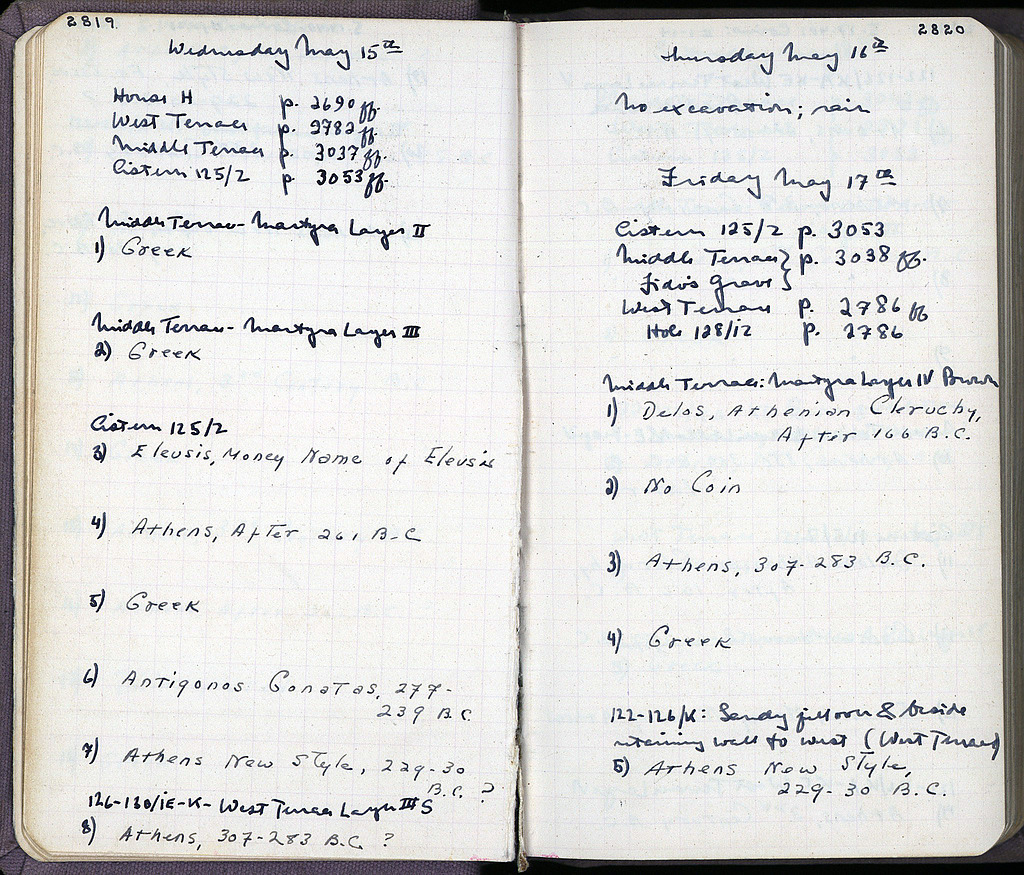 2819
Wednesday May 15th
House H p. 2690 ff.
West Terrace p. 2782 ff.
Middle Terrace p. 3037 ff.
Cistern 125/2 p. 3053 ff.
Middle Terrace - Martyra Layer II
1) Greek
Middle Terrace - Martyra Layer III
2) Greek
Cistern 125/2
3) Eleusis, Money Name of Eleusis
4) Athens, After 261 B.C
5) Greek
6) Antigonos Gonatas, 277-
239 B.C.
7) Athens New Style, 229-30
B.C. ?
126-130/ΙΕ-Κ - West Terrace Layer III S
8) Athens, 307-283 B.C. ?
2820
Thursday May 16th
No excavation; rain
Friday May 17th
Cistern 125/2 p. 3053
Middle Terrace } p. 3038 ff.
Fido's Grave }
West Terrace p. 2786 ff
Hole 128/ΙΖ p. 2786
Middle Terrace: Martyra Layer IV Brown
1) Delos, Athenian Cleruchy,
After 166 B.C.
2) No Coin
3) Athens, 307-283 B.C.
4) Greek
122-126/K: Sandy fill over & beside
retaining wall to west (West Terrace)
5) Athens New Style,
229-30 B.C.